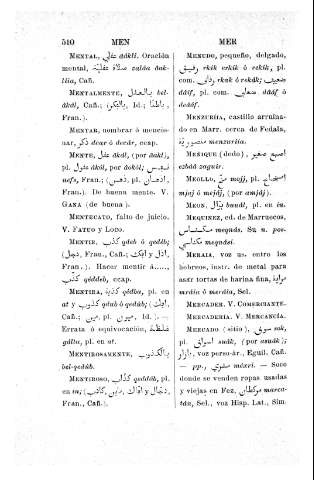 510 MEN MER
MENTAL, عقلي âákli. Oración
mental, صلاة عقلية
Cañ.
MENTALMENTE, بالعقل bel-
âkál, Cañ.; (باطنا, Id.; بالفكر,
Fran.).
MENTAR, nombrar ó mencio-
nar, ذكر dcar ó dcár, ecap.
MENTE, عقل âkál, (por âakl),
pl. عقول âkúl, por ôokól; نفس
nefs, Fran., Cañ.; (ذهن, pl. اذهان,
Fran.). De buena mente. V.
GANA (de buena).
MENTECATO, falto de juicio.
V. FATUO y LOCO.
MENTIR, كذب qdeb ó qedéb;
(دجل Fran., Cañ.; افك Id. y زل
Fran.). Hacer mentir á.....,
كذب qáddeb, ecap.
MENTIRA, كذبة qédba, pl. en
at y كذوب qdub ó qedúb; (افك,
Cañ.; مين, pl. ميون, Id.). —
Errata ó equivocación, غلطة
gálta, pl. en at.
MENTIROSAMENTE, بالكذوب
bel-qedúb.
MENTIROSO, كذاب qeddáb, pl.
en in; (كاذب, دجال y افاك, Cañ.,
Fran., Cañ.).
MENUDO, pequeño, delgado,
رقيق rkik ó rekik, pl.
رقاق rkak ó rekák; ضعيف
dâáf, pl. com. ضعاف dâáf ó
deâáf.
MENZURIÍA, castillo arruina-
do en Marr. cerca de Fedala,
منصورية menzuriía.
MEÑIQUE (dedo), اصبع صغير
sóbâá soguir.
MEOLLO, مخ mojj, pl. امخاخ
mjaj ó mejáj, (por amjáj).
MEON, بوال bauúl, pl. en in.
MEQUINEZ, cd. de Marruecos,
مكناس meqnás. Su n. pos-
مكناسي meqnási.
MERAIA, voz us. entre los
hebreos, instr. de metal para
asir tortas de harina fina, مراية
mráia ó meráia, Sel.
MERCADER. V. COMERCIANTE.
MERCADERIA. V. MERCANCÍA.
MERCADO (sitio), سوق sok,
pl. اسواق suák, (por asuák);
بازار, voz perso-ár., Eguil. Cañ.
— Soco
donde se venden ropas usadas
y viejas en Fez, مركطان marca-
tán, Sel., voz Hisp. Lat., Sim.